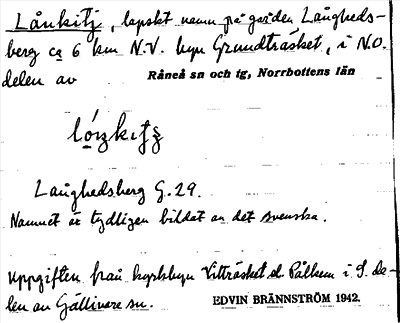 Lånkitj, lapskt namn på gården Långheds-
berg ca 6 km N.V. byn Grundträsket, i N.O.
delen av
Råneå sn och tg, Norrbottens län
Långhedsberg G.29.
Namnet är tydligen bildat av det svenska.
Uppgiften från byn Vitträsket i S. de-
len av Gällivare sn.
EDVIN BRÄNNSTRÖM 1942.